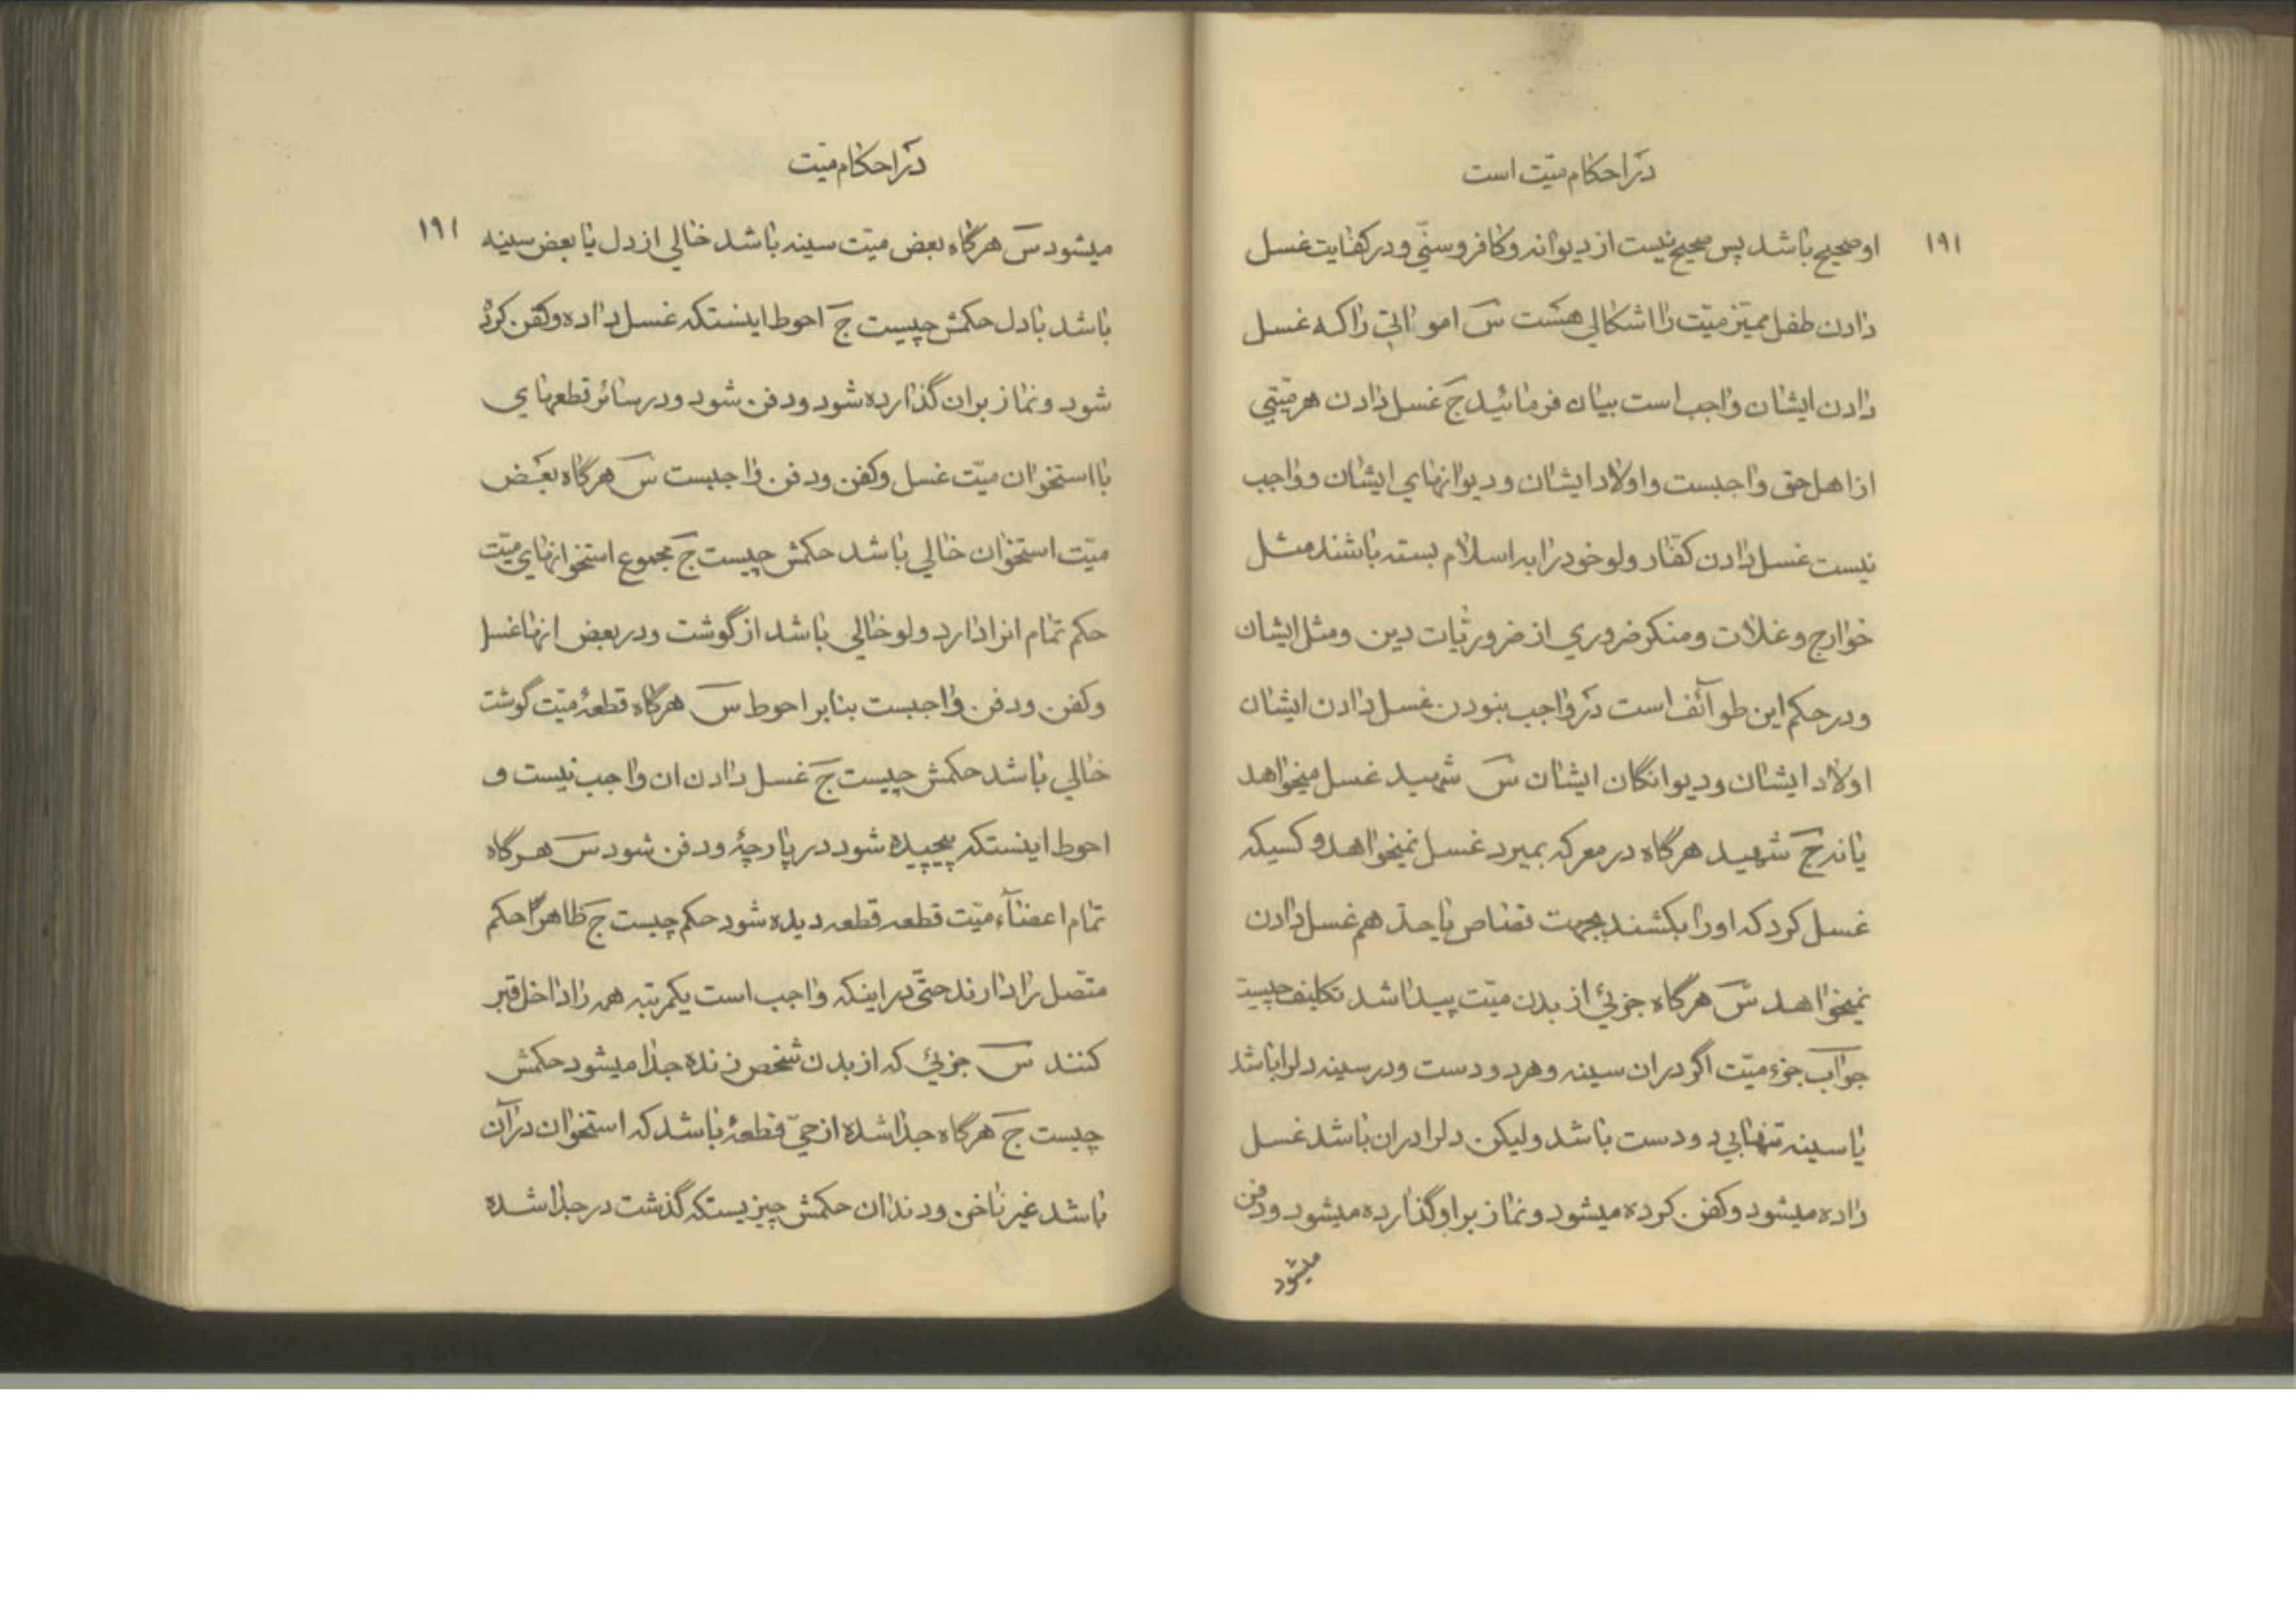 در احکام میّت است
۱۹۱
او صحیح باشد پس صحیح نیست از دیوانه و کافر و سنّی و در کفایت غسل
دادن طفل ممیّز میّت را اشکالی هست س اموالتی را که غسل
دادن ایشان واجب است بیان فرمائید ج غسل دادن هر میّتی
از اهل حق واجبست و اولاد ایشان و دیوانهای ایشان و واجب
نیست غسل دادن کفّار ولو خود را به اسلام بسته باشند مثل
خوارج و غلات و منکر ضروری از ضروریات دین و مثل ایشان
و در حکم این طوآئف است در واجب نبودن غسل دادن ایشان
اولاد ایشان و دیوانگان ایشان س شهید غسل میخواهد
یا نه ج شهید هرگاه در معرکه بمیرد غسل نمیخواهد و کسیکه
غسل کرد که او را بکشند بجهت قصاص یا حد هم غسل دادن
نمیخواهد س هرگاه جزئی از بدن میّت پیدا شد تکلیف چیست
جواب جزء میّت اگر در ان سینه و هر دو دست و در سینه دلرا باشد
یا سینه تنها بی دو دست باشد ولیکن دلرا در ان باشد غسل
داده میشود و کفن کرده میشود و نماز بر او گذارده میشود و دفن
میشود
در احکام میّت
۱۹۱
میشود س هرگاه بعض میّت سینه باشد خالی از دل یا بعض سینه
باشد با دل حکمش چیست ج احوط اینستکه غسل داده و کفن کرد
شود و نماز بر ان گذارده شود و دفن شود و در سائر قطعهای
با استخوان میّت غسل و کفن و دفن واجبست س هرگاه بعض
میّت استخوان خالی باشد حکمش چیست ج مجموع استخوانهای میّت
حکم تمام انرا دارد ولو خالی باشد از گوشت و در بعض انها غسل
و کفن و دفن واجبست بنابر احوط س هرگاه قطعهٔ میّت گوشت
خالی باشد حکمش چیست ج غسل دادن ان واجب نیست و
احوط اینستکه پیچیده شود در پارچهٔ و دفن شود س هرگاه
تمام اعضآء میّت قطعه قطعه دیده شود حکم چیست ج ظاهرًا حکم
متّصل را دارند حتّی در اینکه واجب است یکمرتبه همه را داخل قبر
کنند س جزئی که از بدن شخص زنده جدا میشود حکمش
چیست ج هرگاه جدا شده از حیّ قطعهٔ باشد که استخوان در آن
باشد غیر ناخن و دندان حکمش چیزیستکه گذشت در جدا شده